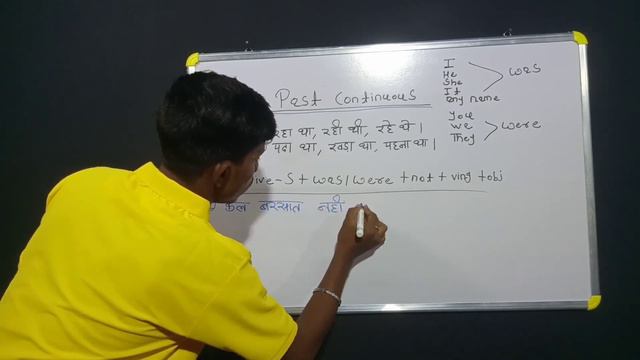 Past Continuous
रहा था, रही थी, रहे थे |
पढा था, खडा था, पहना था |
ive - S + was/were + not + ving + obj
कल बरसात नही
I
He
She
It
any name
was
you
we
They
were